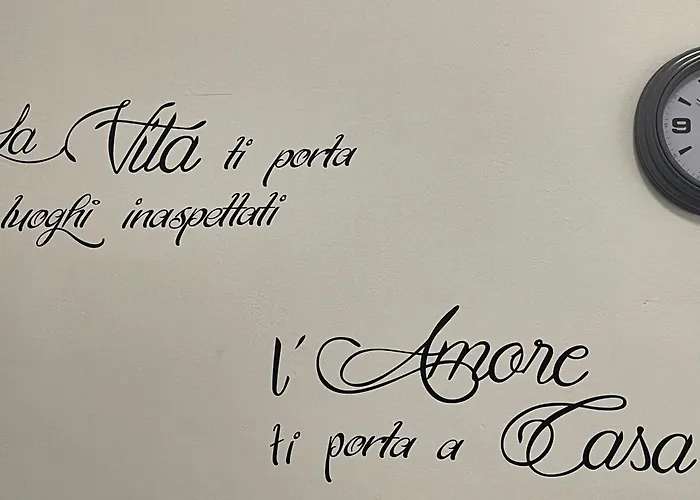 la Vita ti porta
luoghi inaspettati
9
l'Amore
ti porta a Casa